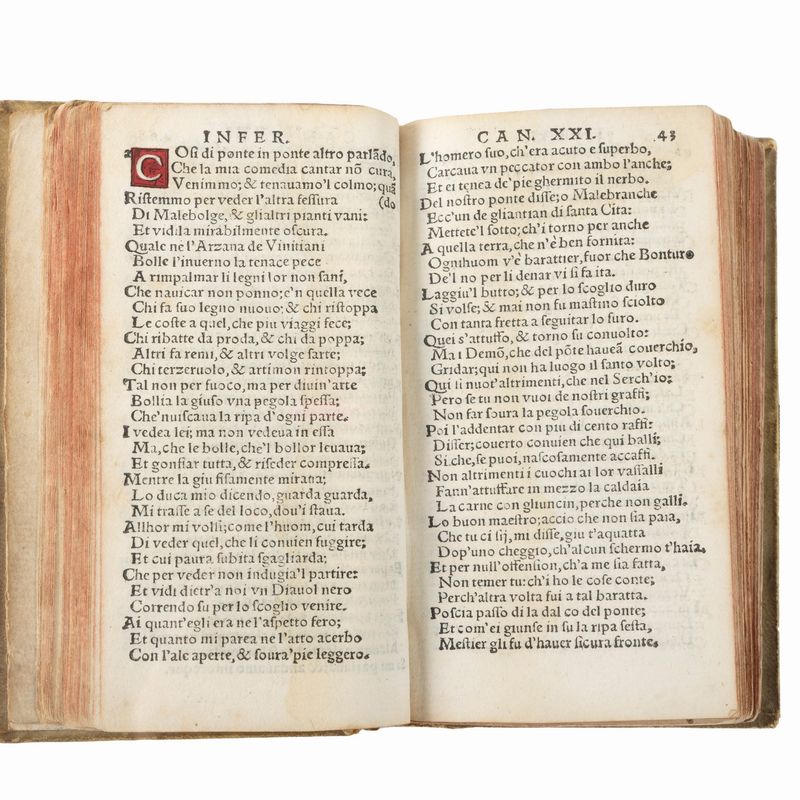 INFER.
COſi di ponte in ponte altro parlãdo,
Che la mia comedia cantar nõ cura,
Venimmo; & tenauamo'l colmo; quã
Riſtemmo per veder l'altra feſſura (do
Di Malebolge, & glialtri pianti vani:
Et vidila mirabilmente oſcura.
Quale ne l'Arzana de Vinitiani
Bolle l'inuerno la tenace pece
A rimpalmar li legni lor non ſani,
Che nauicar non ponno; e'n quella vece
Chi fa ſuo legno nuouo; & chi riſtoppa
Le coſte a quel, che piu viaggi fece;
Chi ribatte da proda, & chi da poppa;
Altri fa remi, & altri volge ſarte;
Chi terzeruolo, & artimon rintoppa;
Tal non per fuoco, ma per diuin'arte
Bollia la giuſo vna pegola ſpeſſa;
Che'nuiſcaua la ripa d'ogni parte.
I vedea lei; ma non vedeua in eſſa
Ma, che le bolle, che'l bollor leuaua;
Et gonfiar tutta, & riſeder compreſſa.
Mentre la giu fiſamente miraua;
Lo duca mio dicendo, guarda guarda,
Mi traſſe a ſe del loco, dou'i ſtaua.
Allhor mi volſi; come l'huom, cui tarda
Di veder quel, che li conuien fuggire;
Et cui paura ſubita ſgagliarda;
Che per veder non indugia'l partire:
Et vidi dietr'a noi vn Diauol nero
Correndo ſu per lo ſcoglio venire.
Ai quant'egli era ne l'aſpetto fero;
Et quanto mi parea ne l'atto acerbo
Con l'ale aperte, & ſoura'pie leggero.
CAN. XXI. 43
L'homero ſuo, ch'era acuto e ſuperbo,
Carcaua vn peccator con ambo l'anche;
Et ei tenea de'pie ghermito il nerbo.
Del noſtro ponte diſſe; o Malebranche
Ecc'un de gliantian di ſanta Cita:
Mettete'l ſotto; ch'i torno per anche
A quella terra, che n'è ben fornita:
Ognihuom v'è barattier, fuor che Bonturo
De'l no per li denar vi ſi fa ita.
Laggiu'l butto; & per lo ſcoglio duro
Si volſe; & mai non fu maſtino ſciolto
Con tanta fretta a ſeguitar lo furo.
Quei s'attuffo, & torno ſu conuolto:
Ma i Demõ, che del põte haueã couerchio,
Gridar; qui non ha luogo il ſanto volto;
Qui ſi nuot'altrimenti, che nel Serch'io:
Pero ſe tu non vuoi de noſtri graffi;
Non far ſoura la pegola ſouerchio.
Poi l'addentar con piu di cento raffi:
Diſſer; couerto conuien che qui balli;
Si che, ſe puoi, naſcoſamente accaffi.
Non altrimenti i cuochi ai lor vaſſalli
Fann'attuffare in mezzo la caldaia
La carne con gliuncin, perche non galli.
Lo buon maeſtro; accio che non ſia paia,
Che tu ci ſij, mi diſſe, giu t'aquatta
Dop'uno cheggio, ch'alcun ſchermo t'haia.
Et per null'offenſion, ch'a me ſia fatta,
Non temer tu: ch'i ho le coſe conte;
Perch'altra volta fui a tal baratta.
Poſcia paſſo di la dal co del ponte;
Et com'ei giunſe in ſu la ripa ſeſta,
Meſtier gli fu d'hauer ſicura fronte.